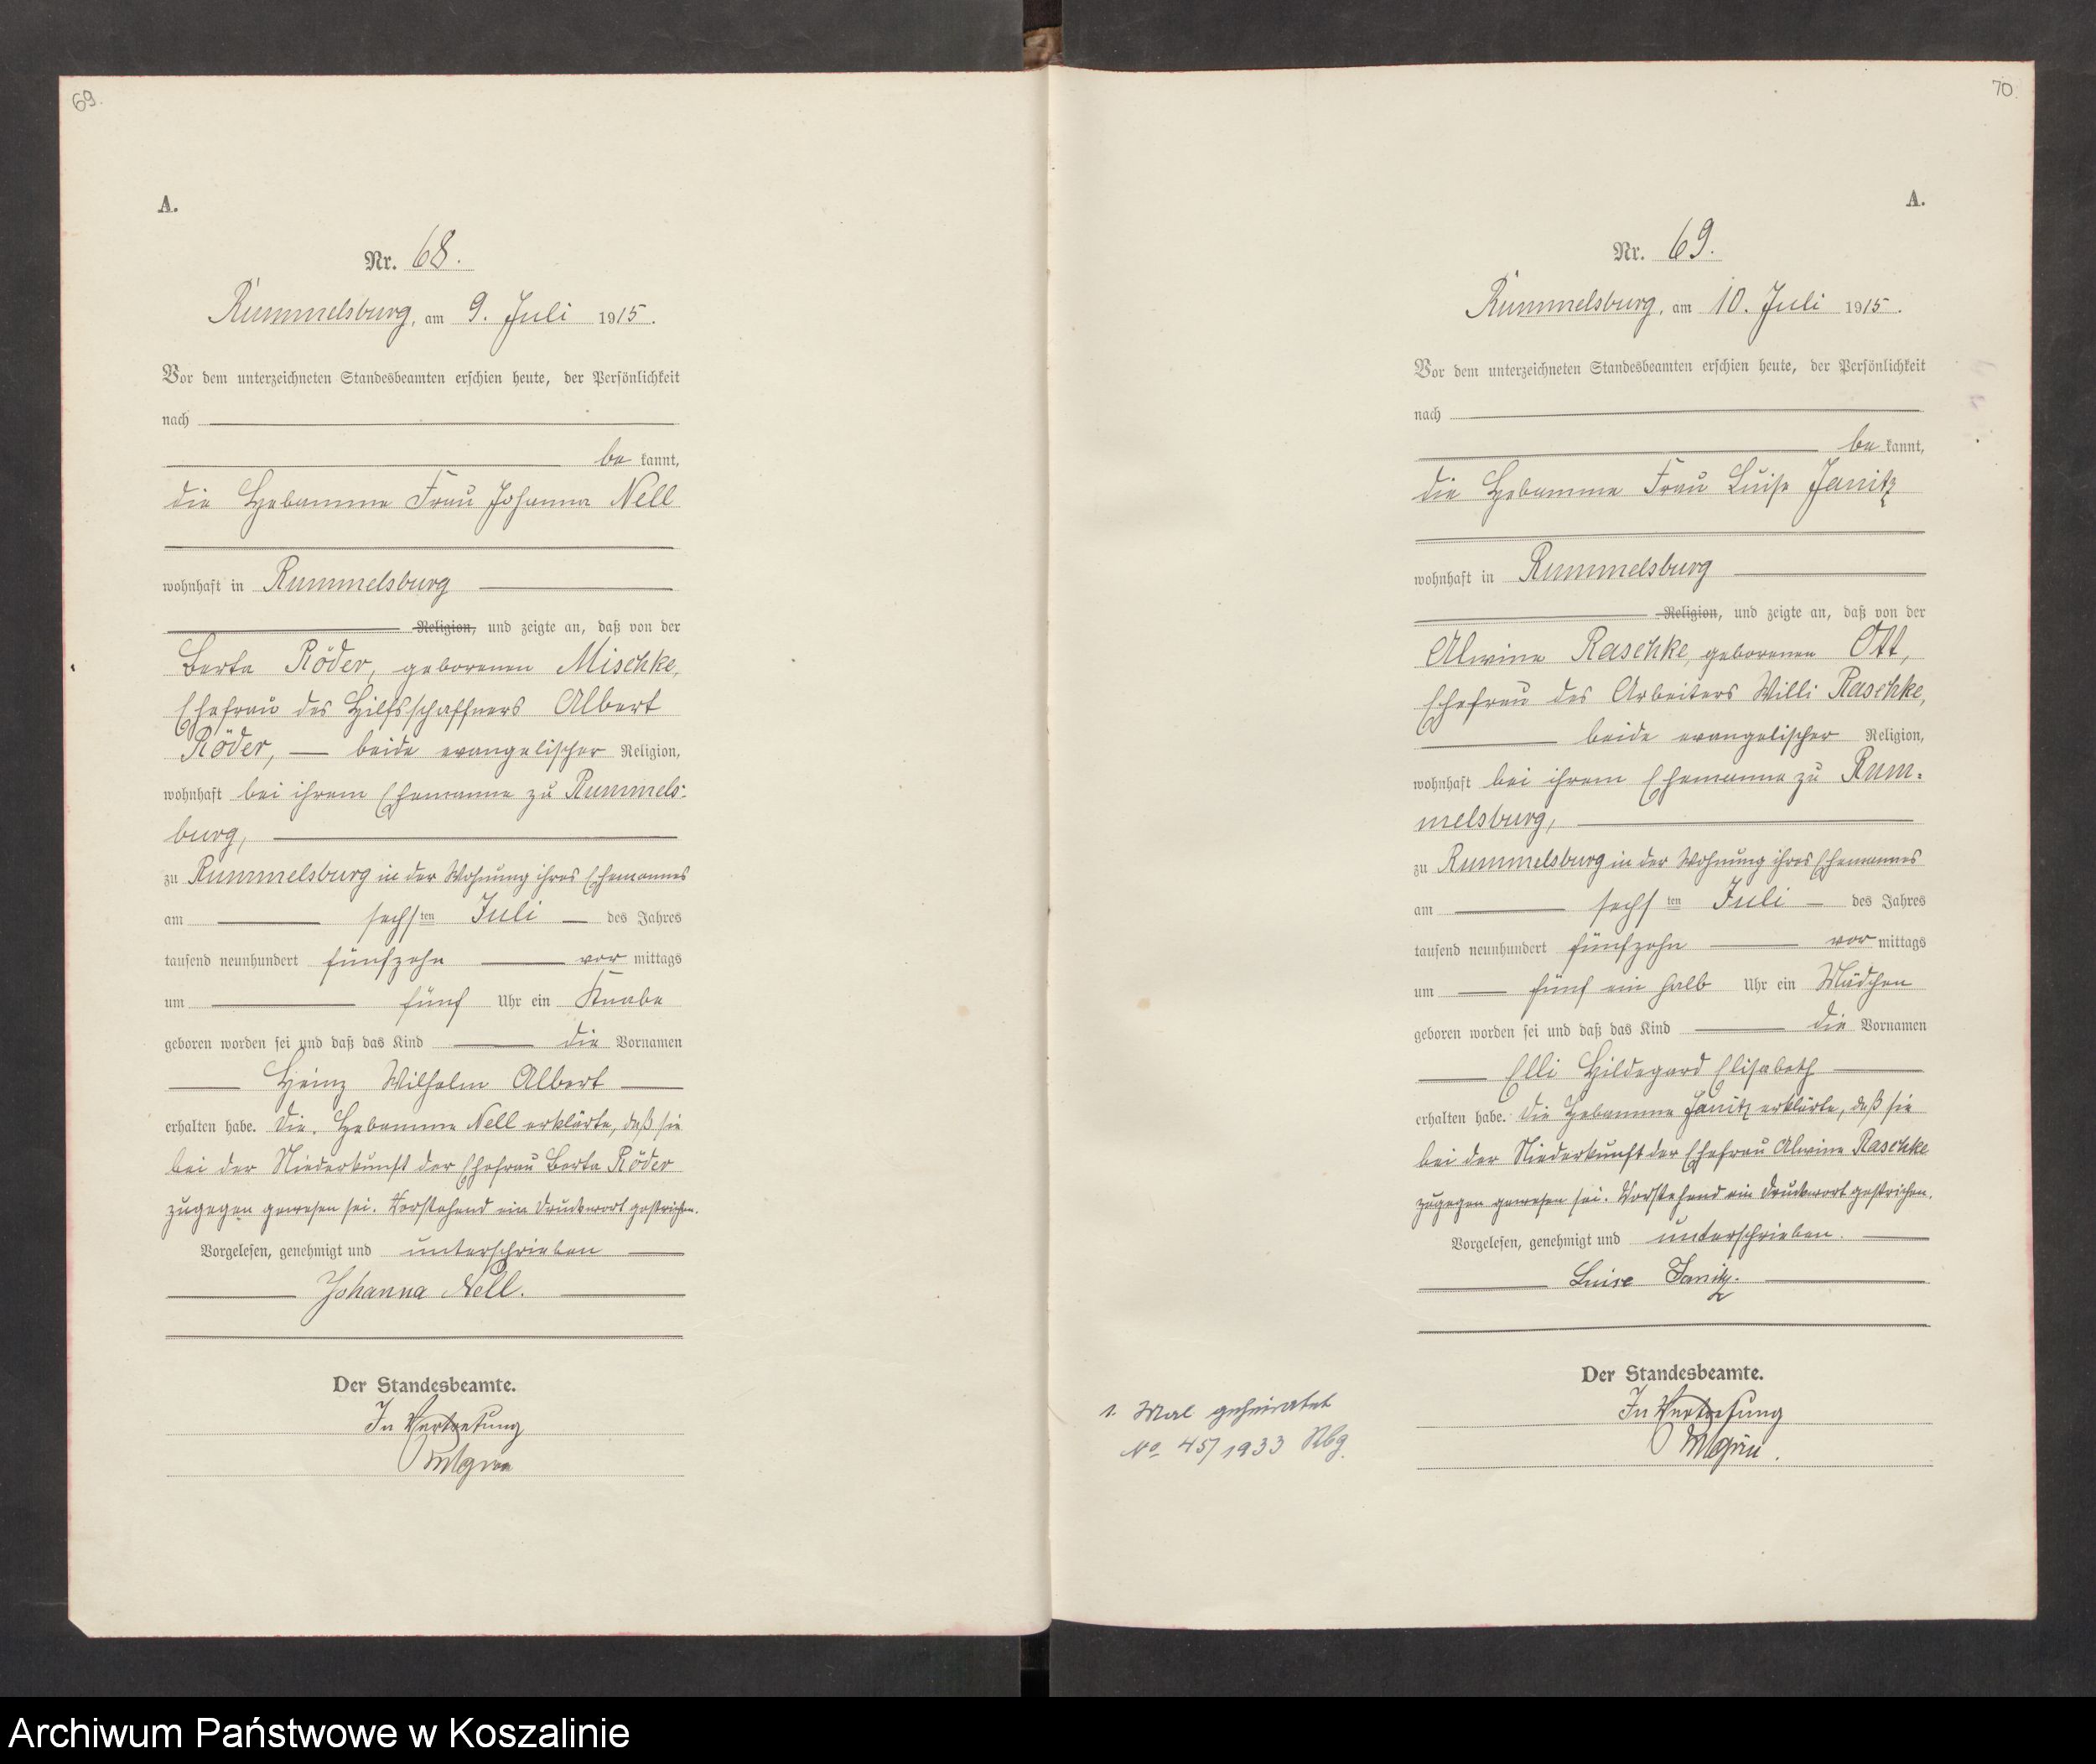 69.
A.
Nr. 68.
Rummelsburg, am 9. Juli 1915.
Vor dem unterzeichneten Standesbeamten erschien heute, der Persönlichkeit
nach
be kannt,
die Hebamme Frau Johanna Nell
wohnhaft in Rummelsburg
Religion, und zeigte an, daß von der
Berta Röder, geborenen Mischke,
Ehefrau des Hilfsschaffners Albert
Röder, — beide evangelischer Religion,
wohnhaft bei ihrem Ehemanne zu Rummels-
burg,
zu Rummelsburg in der Wohnung ihres Ehemannes
am sechsten Juli — des Jahres
tausend neunhundert fünfzehn vor mittags
um fünf Uhr ein Knabe
geboren worden sei und daß das Kind die Vornamen
Heinz Wilhelm Albert
erhalten habe. Die Hebamme Nell erklärte, daß sie
bei der Niederkunft der Ehefrau Berta Röder
zugegen gewesen sei. Vorstehend ein Druckwort gestrichen.
Vorgelesen, genehmigt und unterschrieben
Johanna Nell.
Der Standesbeamte.
In Vertretung
70.
A.
Nr. 69.
Rummelsburg, am 10. Juli 1915.
Vor dem unterzeichneten Standesbeamten erschien heute, der Persönlichkeit
nach
be kannt,
die Hebamme Frau Luise Janitz
wohnhaft in Rummelsburg
Religion, und zeigte an, daß von der
Alwine Raschke, geborenen Ott,
Ehefrau des Arbeiters Willi Raschke,
beide evangelischer Religion,
wohnhaft bei ihrem Ehemanne zu Rum-
melsburg,
zu Rummelsburg in der Wohnung ihres Ehemannes
am sechsten Juli — des Jahres
tausend neunhundert fünfzehn vor mittags
um fünf ein halb Uhr ein Mädchen
geboren worden sei und daß das Kind die Vornamen
Elli Hildegard Elisabeth
erhalten habe. Die Hebamme Janitz erklärte, daß sie
bei der Niederkunft der Ehefrau Alwine Raschke
zugegen gewesen sei. Vorstehend ein Druckwort gestrichen.
Vorgelesen, genehmigt und unterschrieben.
Luise Janitz.
Der Standesbeamte.
In Vertretung
1. Mal geheiratet
No 45/1933 Rbg.
Archiwum Państwowe w Koszalinie